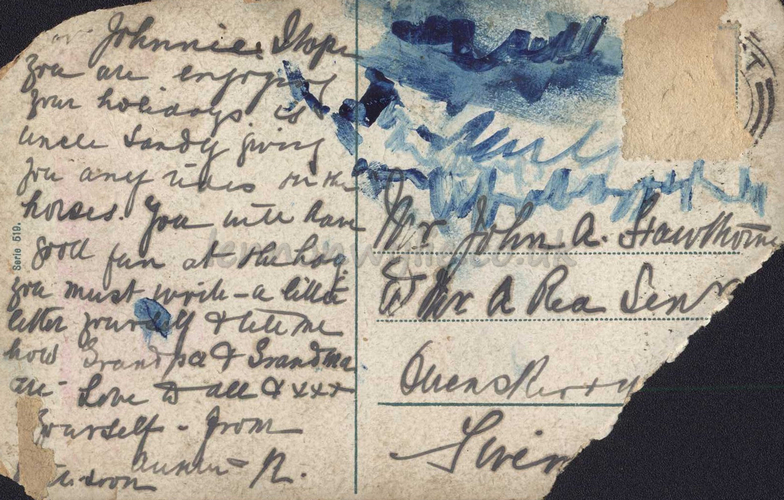 Johnnie. I hope
you are enjoying
your holidays is
Uncle Sandy giving
you any rides on the
horses. You will have
good fun at the hay
you must write a little
letter yourself & tell me
how Grandpa & Grandma
are - Love to all & xxx
yourself - from
Auntie R.
soon
Serie 519.
Mr John A. Hawthorne
Mr A Rea Senr
Queens